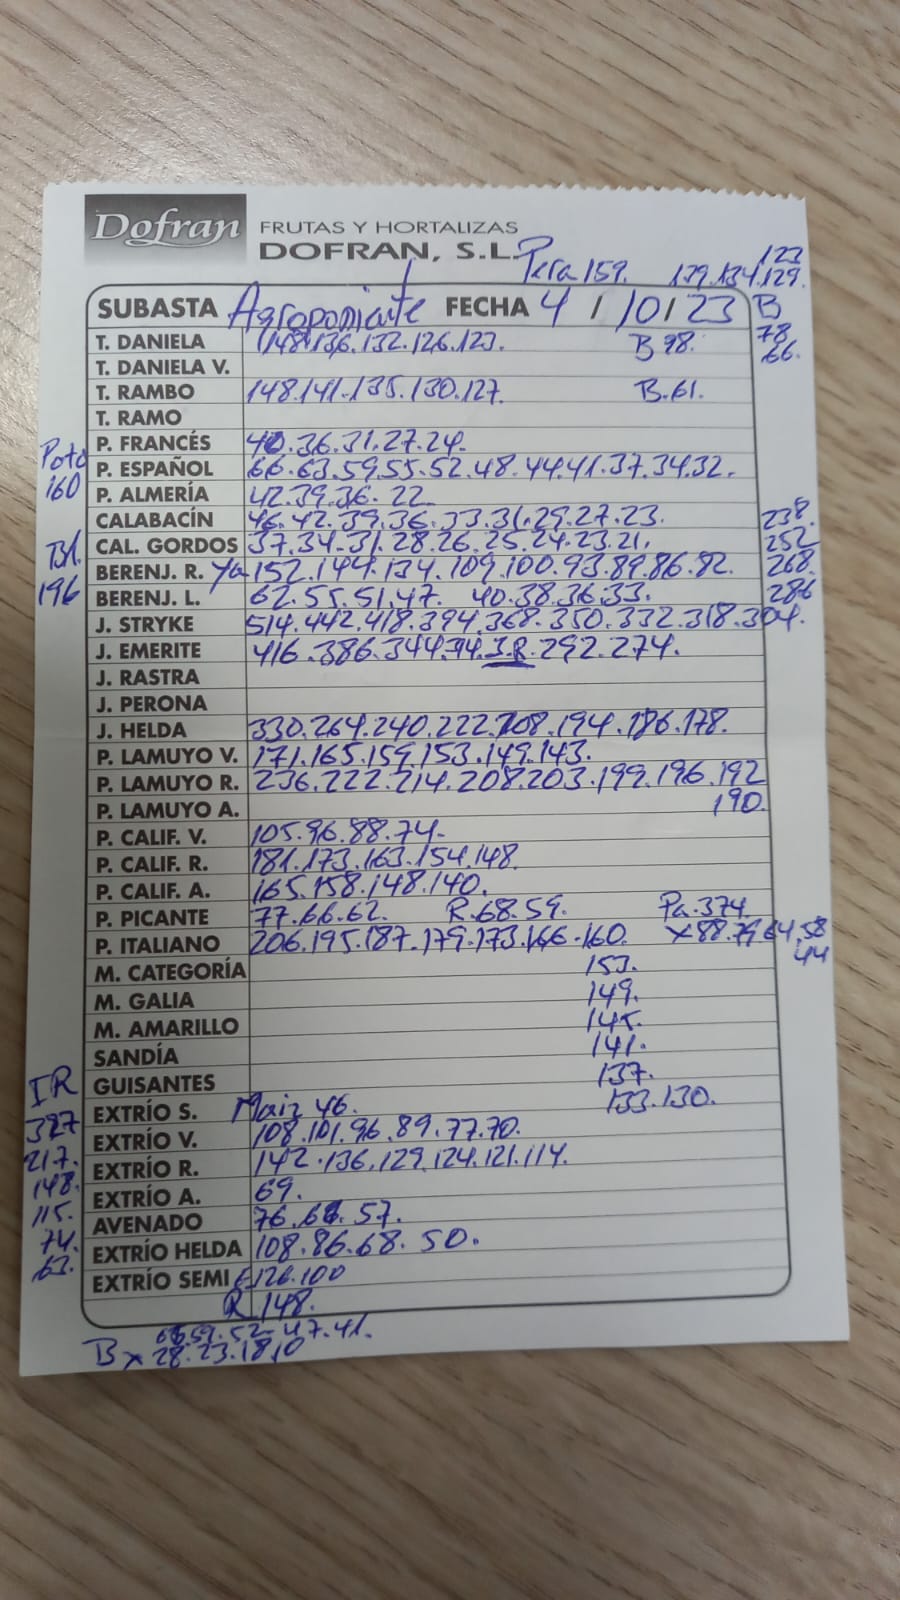 Dofran FRUTAS Y HORTALIZAS
DOFRAN, S.L. Pera 159. 123
139.134.129.
SUBASTA Agroponiente FECHA 4 / 10 / 23 B
T. DANIELA 148.136.132.126.123. B 98. 78
T. DANIELA V. 66.
T. RAMBO 148.141.135.130.127. B.61.
T. RAMO
P. FRANCÉS 40.36.31.27.24.
P. ESPAÑOL 66.63.59.55.52.48.44.41.37.34.32.
160 P. ALMERÍA 42.39.36.22
CALABACÍN 46.42.39.36.33.31.29.27.23. 238.
Bl. CAL. GORDOS 37.34.31.28.26.25.24.23.21. 252
196 BERENJ. R. Ya 152.144.134.109.100.93.89.86.82. 268.
BERENJ. L. 62.55.51.47. 40.38.36.33. 286
J. STRYKE 514.442.418.394.368.350.332.318.304.
J. EMERITE 416.386.344. 292.274.
J. RASTRA
J. PERONA
J. HELDA 330.264.240.222.208.194.186.178.
P. LAMUYO V. 171.165.159.153.149.143.
P. LAMUYO R. 236.222.214.208.203.199.196.192
P. LAMUYO A. 190.
P. CALIF. V. 105.96.88.74.
P. CALIF. R. 181.173.163.154.148.
P. CALIF. A. 165.158.148.140.
P. PICANTE 77.66.62. R.68.59. Pa.374.
P. ITALIANO 206.195.187.179.173.166.160. x88.79.64.58
44
M. CATEGORÍA 153.
M. GALIA 149.
M. AMARILLO 145.
SANDÍA 141.
GUISANTES 137.
IR EXTRÍO S. Maiz 46. 133.130.
327 EXTRÍO V. 108.101.96.89.77.70.
217. EXTRÍO R. 142.136.129.124.121.114.
148. EXTRÍO A. 69.
115. AVENADO 76.68.57.
74. EXTRÍO HELDA 108.86.68.50.
63. EXTRÍO SEMI 126.100
R 148.
59.52.47.41.
B x 28.23.18.